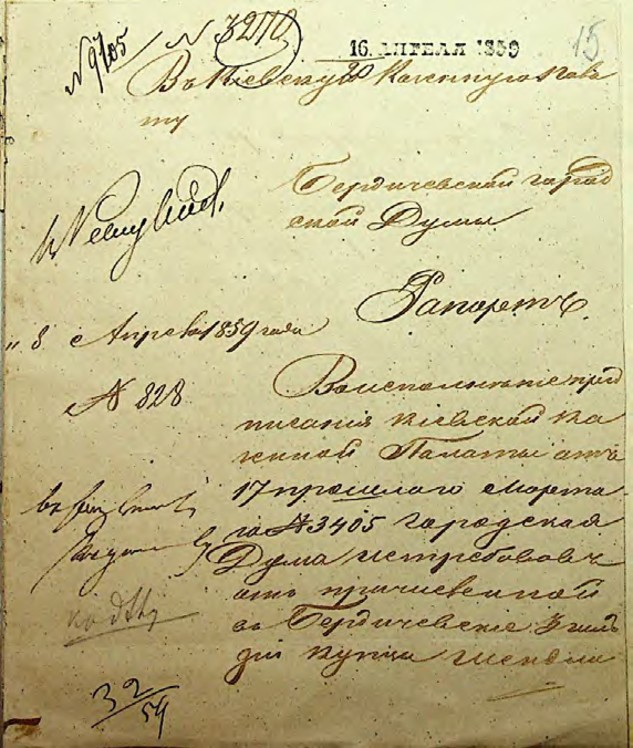 № 9705
№ 32110
16 АПРЕЛЯ 1859
15
20
Въ Кіевскую Казенную Пала
ту
Бердичевской город
ской Думы
Рапортъ.
„ 8 Апреля 1859 года
№ 828
Во исполненіе пред
писанія Кіевской Ка
зенной Палаты отъ
17 прошлого Марта
за № 3405 Городская
Дума истребовавъ
отъ причисленной
въ Бердичевские 3 гиль
діи купца
32/54